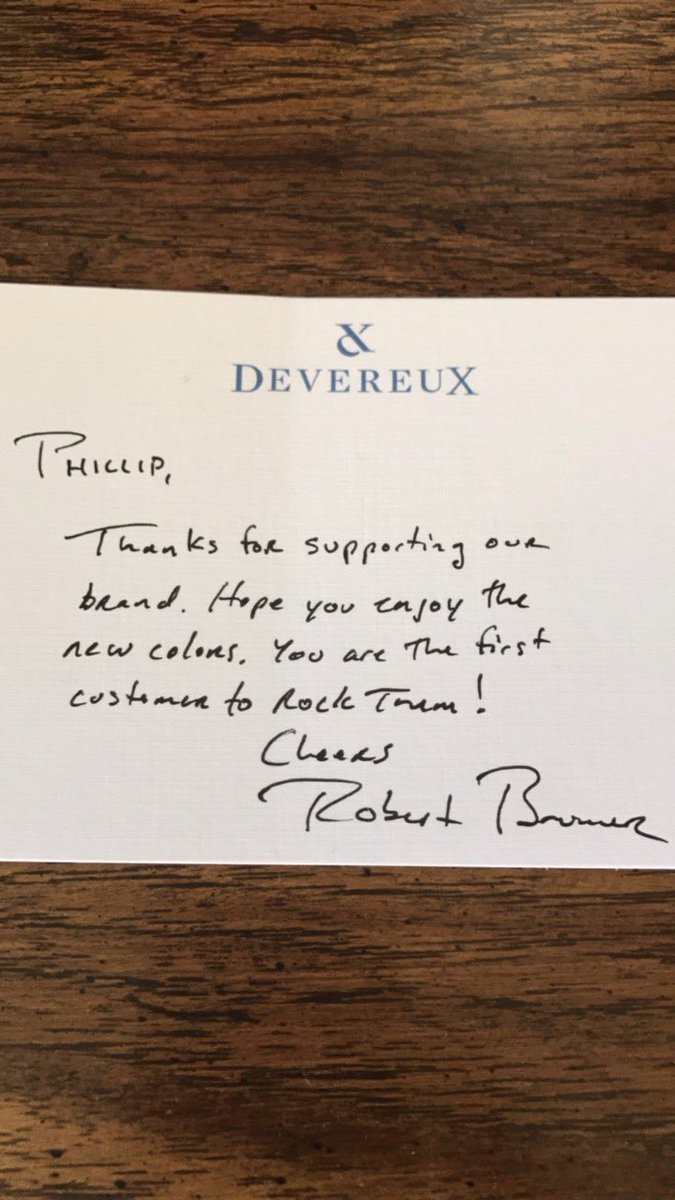 DEVEREUX
PHILLIP,
Thanks for supporting our
brand. Hope you enjoy the
new colors. You are the first
customer to Rock Them!
Cheers
Robert